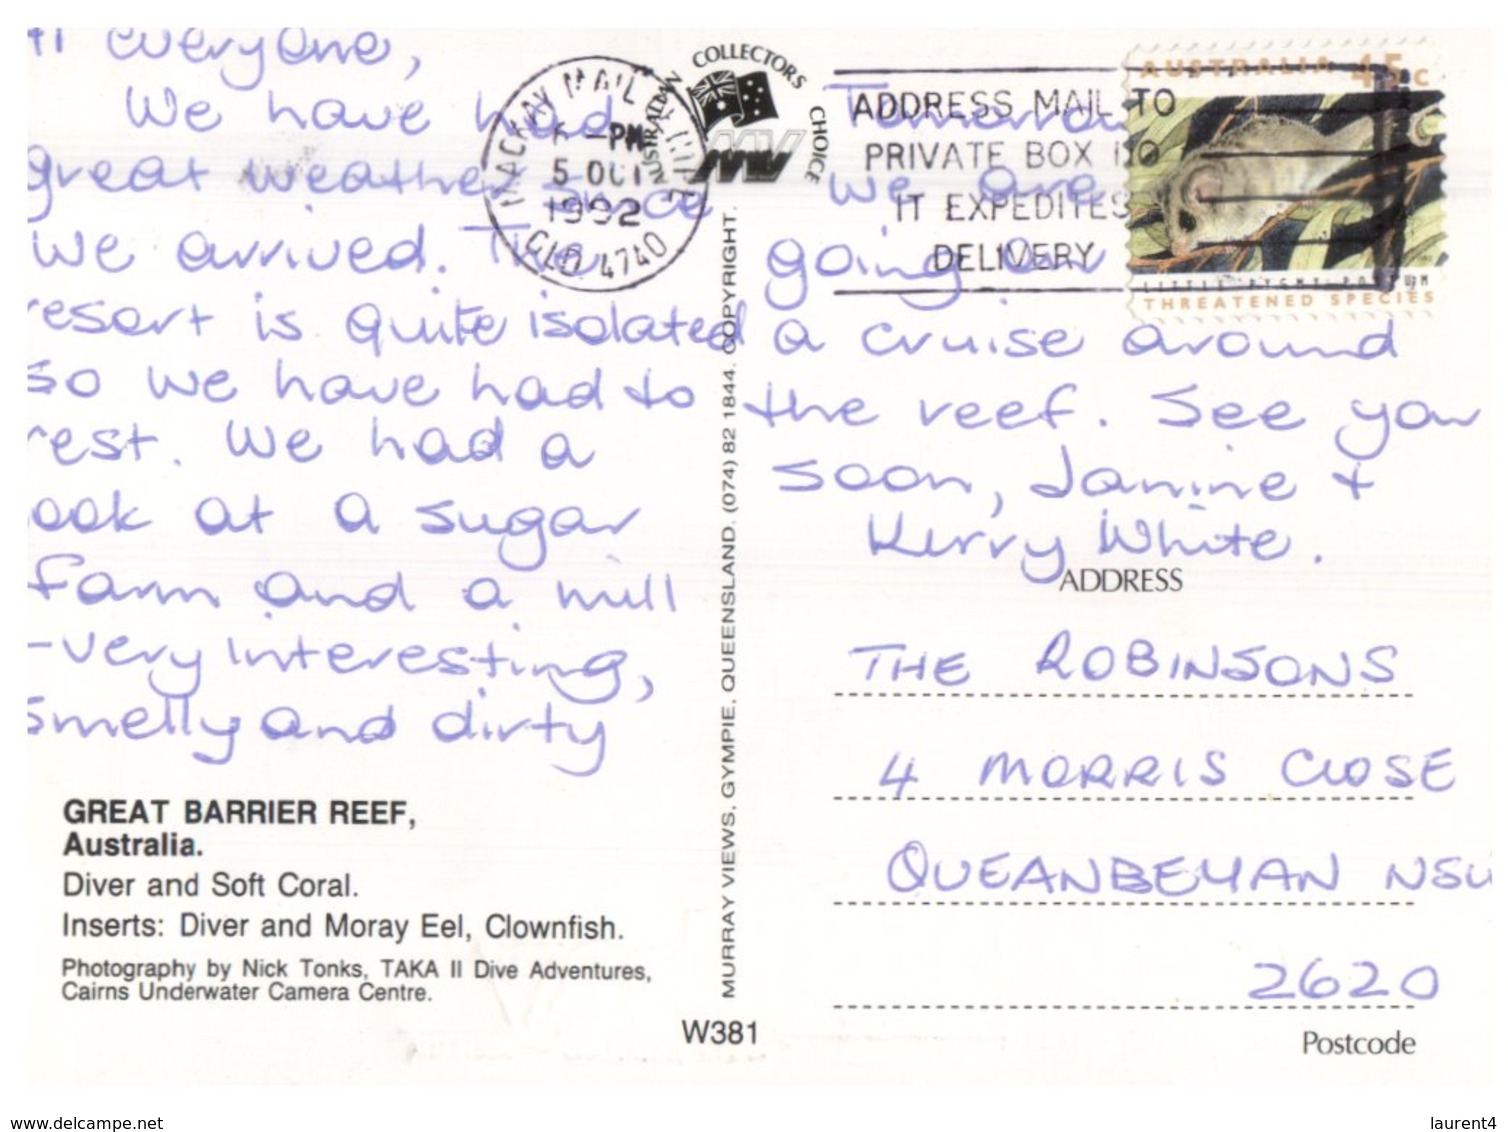 Hi everyone,
We have had
great weather since
we arrived. The
resort is quite isolated
so we have had to
rest. We had a
look at a sugar
farm and a mill
- very interesting,
smelly and dirty
GREAT BARRIER REEF,
Australia.
Diver and Soft Coral.
Inserts: Diver and Moray Eel, Clownfish.
Photography by Nick Tonks, TAKA II Dive Adventures,
Cairns Underwater Camera Centre.
MACKAY MAIL
6 -PM
5 OCT
1992
QLD 4740
AUSTRALIAN COLLECTORS CHOICE
MV
MURRAY VIEWS, GYMPIE, QUEENSLAND, (074) 82 1844. COPYRIGHT.
W381
ADDRESS MAIL TO
PRIVATE BOX NO
IT EXPEDITES
DELIVERY
AUSTRALIA 45c
LITTLE PYGMY POSSUM
THREATENED SPECIES
Tomorrow
we are
going on
a cruise around
the reef. See you
soon, Janine +
Kerry White.
ADDRESS
THE ROBINSONS
4 MORRIS CLOSE
QUEANBEYAN NSW
2620
Postcode
www.delcampe.net
laurent4